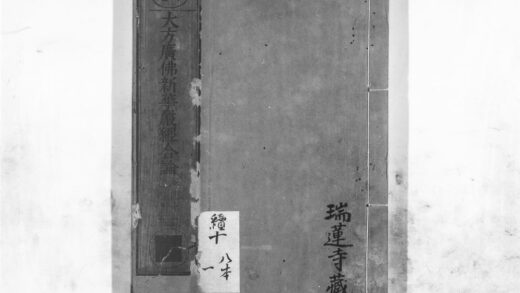 大方廣佛新華嚴經合論
瑞蓮寺藏
續十
八本
一